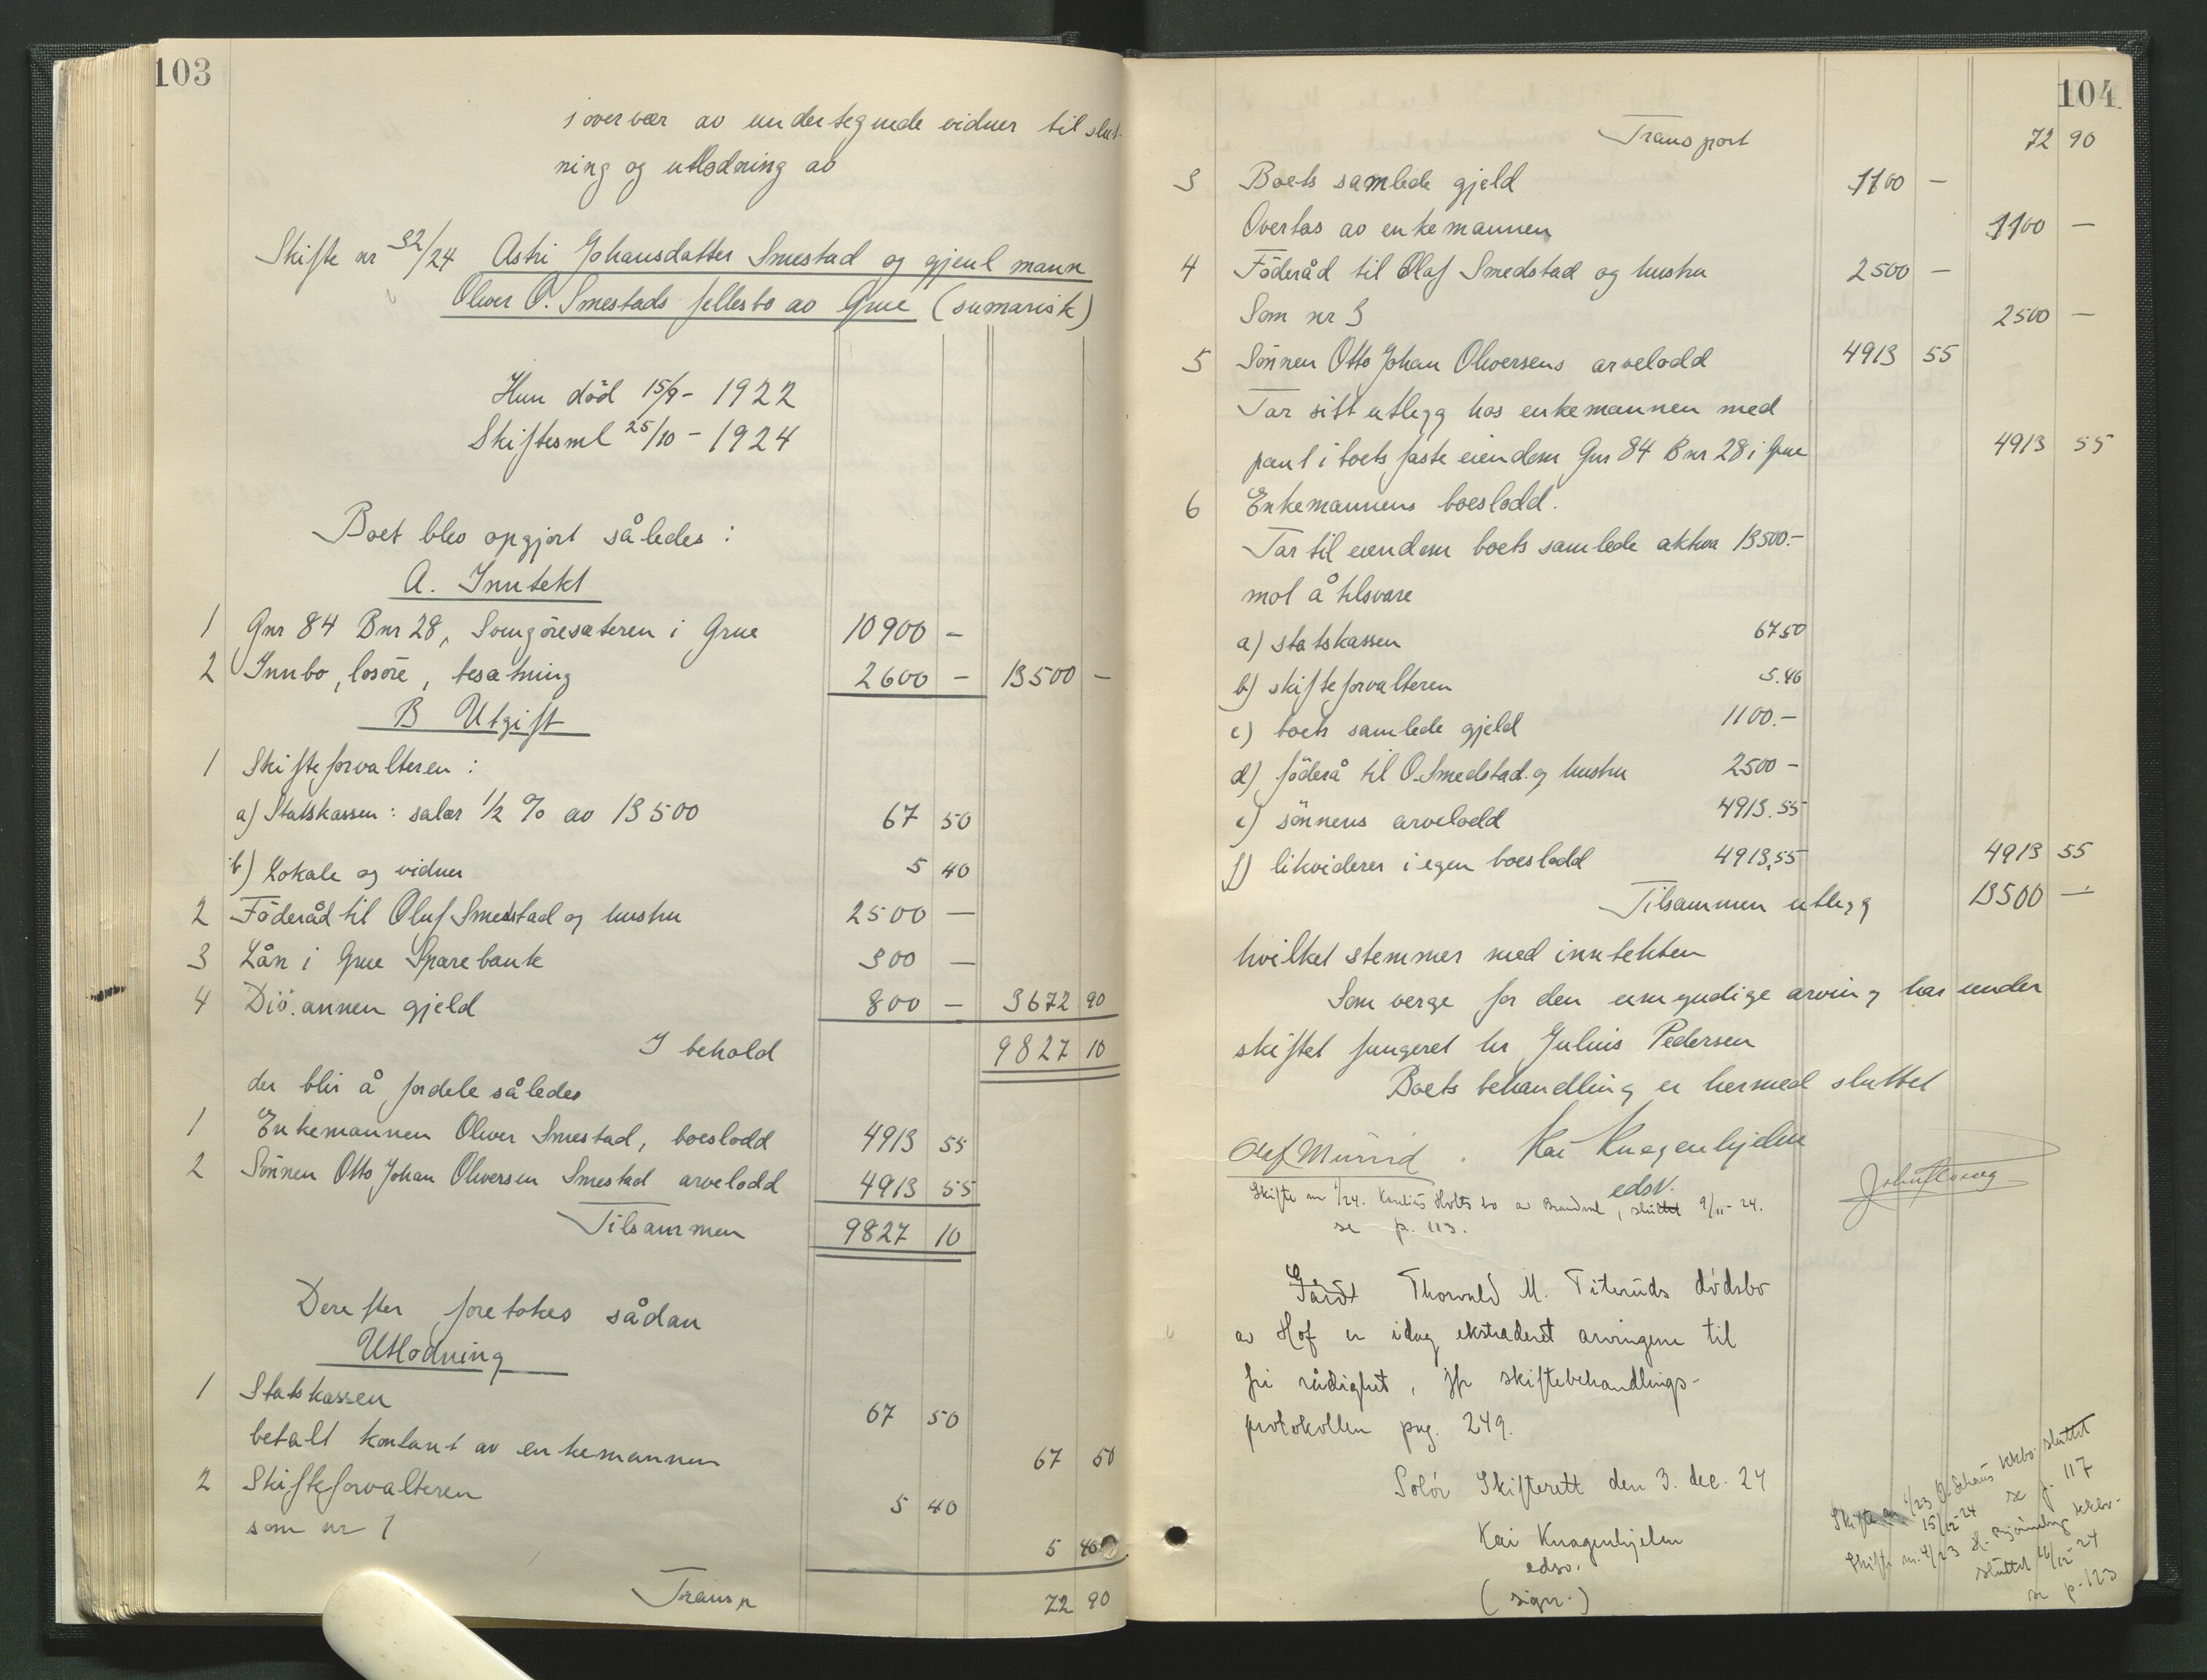 103
i overvær av undertegnede vidner til slut-
ning og utlodning av
Skifte nr 32/24 Astri Johansdatter Smestad og gjenl mann
Oliver O. Smestads fellesbo av Grue (sumarisk)
Hun död 15/9 - 1922
Skiftesml 25/10 - 1924
Boet blev opgjort således :
A. Inntekt
1 Gnr 84 Bnr 28, i Grue 10900 -
2 Innbo, losöre, besætning 2600 - 13500 -
B Utgift
1 Skifteforvalteren :
a) Statskassen : salær 1/2 % av 13500 67 50
b) Lokale og vidner 5 40
2 Föderåd til Oluf Smedstad og hustru 2500 —
3 Lån i Grue Sparebank 300 —
4 Div. annen gjeld 800 — 3672 90
I behold 9827 10
der blir å fordele således
1 Enkemannen Oliver Smestad, boeslodd 4913 55
2 Sönnen Otto Johan Oliversen Smestad arvelodd 4913 55
Tilsammen 9827 10
Derefter foretokes sådan
Utlodning
1 Statskassen 67 50
betalt kontant av enkemannen 67 50
2 Skifteforvalteren 5 40
som nr 1 5 40
Transp 72 90
104
Transport 72 90
3 Boets samlede gjeld 1100 —
Overtas av enkemannen 1100 —
4 Föderåd til Olaf Smedstad og hustru 2500 —
Som nr 3 2500 —
5 Sönnen Otto Johan Oliversens arvelodd 4913 55
Tar sitt utlegg hos enkemannen med
pant i boets faste eiendom Gnr 84 Bnr 28 i Grue 4913 55
6 Enkemannens boeslodd.
Tar til eiendom boets samlede aktiva 13500.-
mot å tilsvare
a) statskassen 67 50
b) skifteforvalteren 5.40
c) boets samlede gjeld 1100.-
d) föderå til O. Smedstad og hustru 2500 -
e) sönnens arvelodd 4913.55
f) likviderer i egen boeslodd 4913,55 4913 55
Tilsammen utlegg 13500 —
hvilket stemmer med inntekten
Som verge for den umyndige arving har under
skiftet fungeret hr Julius Pedersen
Boets behandling er hermed sluttet
Olaf Kai Knagenhjelm
edsv.
Skifte nr 1/24. Holts bo av Brandval, sluttet 9/11-24.
se p. 113.
Gård Thorvald M. Titeruds dödsbo
av Hof er idag ekstraderet arvingene til
fri rådighet, jfr skiftebehandlings-
protokollen pag. 249.
Solör Skifterett den 3. dec. 24
Kai Knagenhjelm
edsv.
(sign.)
Skifte nr 1/23 sluttet
15/12 24 se p. 117
Skifte nr. 4/23
sluttet 16/12 24
se p. 123